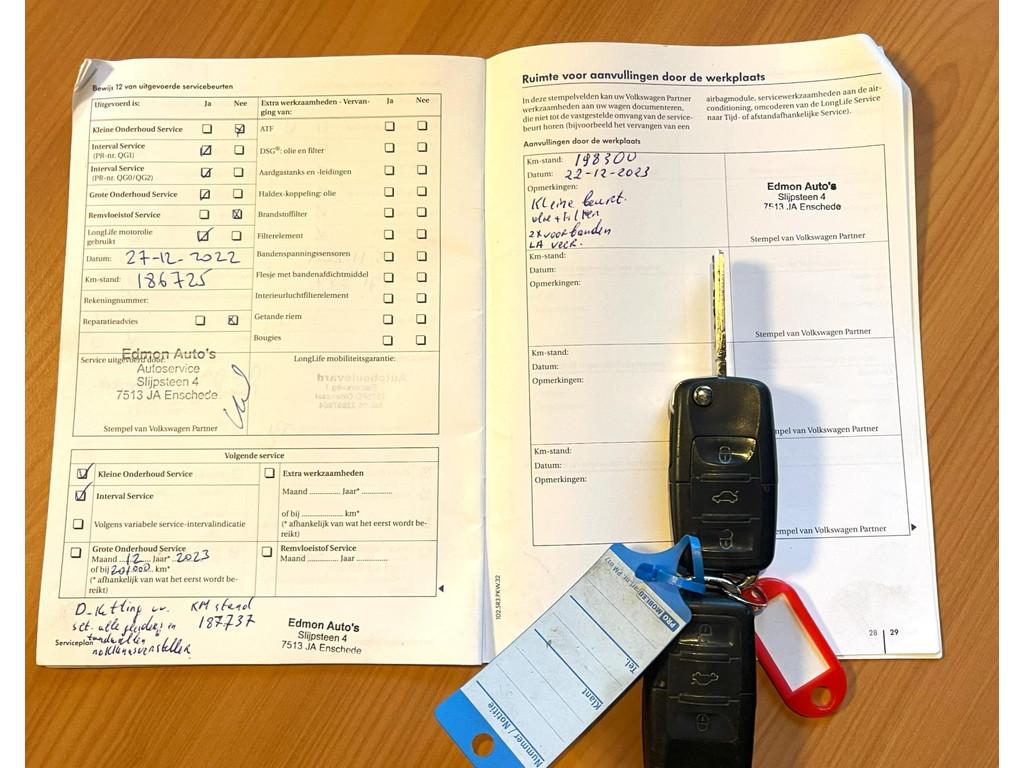 Bewijs 12 van uitgevoerde servicebeurten
Uitgevoerd is: Ja Nee
Kleine Onderhoud Service
Interval Service
(PR-nr. QG1)
Interval Service
(PR-nr. QG0/QG2)
Grote Onderhoud Service
Remvloeistof Service
LongLife motorolie
gebruikt
Datum: 27-12-2022
Km-stand: 186725
Rekeningnummer:
Reparatieadvies
Extra werkzaamheden - Vervan-
ging van: Ja Nee
ATF
DSG®: olie en filter
Aardgastanks en -leidingen
Haldex-koppeling: olie
Brandstoffilter
Filterelement
Bandenspanningssensoren
Flesje met bandenafdichtmiddel
Interieurluchtfilterelement
Getande riem
Bougies
Service uitgevoerd door:
Edmon Auto's
Autoservice
Slijpsteen 4
7513 JA Enschede
Stempel van Volkswagen Partner
LongLife mobiliteitsgarantie:
Volgende service
Kleine Onderhoud Service
Interval Service
Volgens variabele service-intervalindicatie
Grote Onderhoud Service
Maand 12 Jaar* 2023
of bij 201000 km*
(* afhankelijk van wat het eerst wordt be-
reikt)
Extra werkzaamheden
Maand ............. Jaar* .............
of bij ..................... km*
(* afhankelijk van wat het eerst wordt be-
reikt)
Remvloeistof Service
Maand ............. Jaar* .............
D-ketting KM stand
set. alle en 187737
Serviceplan
Edmon Auto's
Slijpsteen 4
7513 JA Enschede
Ruimte voor aanvullingen door de werkplaats
In deze stempelvelden kan uw Volkswagen Partner
werkzaamheden aan uw wagen documenteren,
die niet tot de vastgestelde omvang van de service-
beurt horen (bijvoorbeeld het vervangen van een
airbagmodule, servicewerkzaamheden aan de air-
conditioning, omcoderen van de LongLife Service
naar Tijd- of afstandafhankelijke Service).
Aanvullingen door de werkplaats
Km-stand: 198300
Datum: 22-12-2023
Opmerkingen:
Kleine beurt.
olie + filter
2x voorbanden
LA veer.
Edmon Auto's
Slijpsteen 4
7513 JA Enschede
Stempel van Volkswagen Partner
Km-stand:
Datum:
Opmerkingen:
Stempel van Volkswagen Partner
Km-stand:
Datum:
Opmerkingen:
mpel van Volkswagen Partner
Km-stand:
Datum:
Opmerkingen:
empel van Volkswagen Partner
102.5R3.PKW.32
28 | 29
Tel.
Klant
Nummer / Notitie